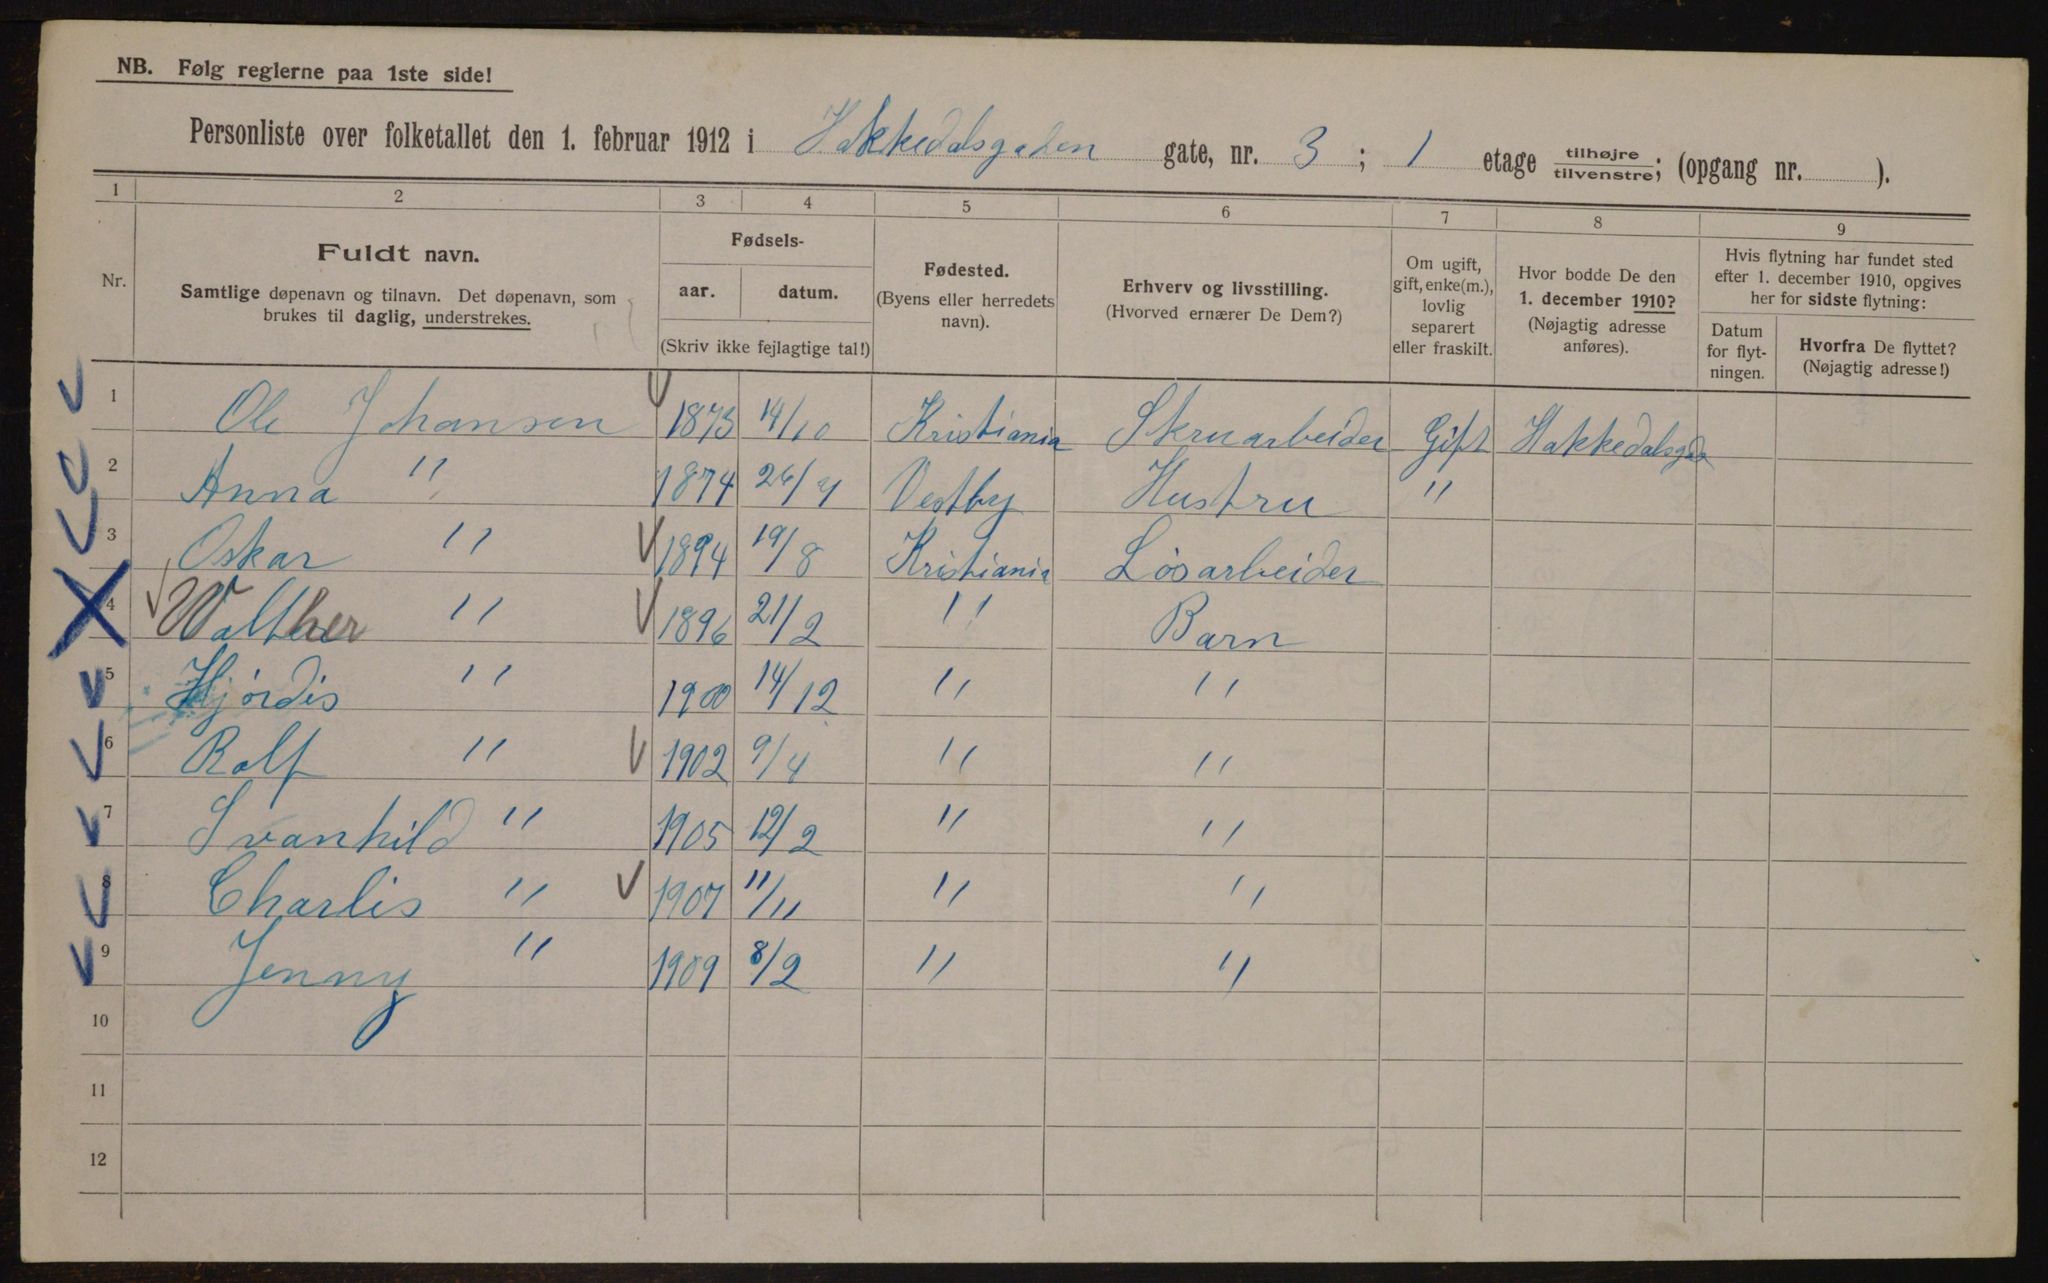 NB. Følg reglerne paa 1ste side!
Personliste over folketallet den 1. februar 1912 i Hakkedalsgaden gate, nr. 3 ; 1 etage tilhøjre tilvenstre; (opgang nr. ).
1 2 3 4 5 6 7 8 9
Nr.
Fuldt navn.
Samtlige døpenavn og tilnavn. Det døpenavn, som
brukes til daglig, understrekes.
Fødsels-
aar. datum.
(Skriv ikke fejlagtige tal!)
Fødested.
(Byens eller herredets
navn).
Erhverv og livsstilling.
(Hvorved ernærer De Dem?)
Om ugift,
gift, enke(m.),
lovlig
separert
eller fraskilt.
Hvor bodde De den
1. december 1910?
(Nøjagtig adresse
anføres).
Hvis flytning har fundet sted
efter 1. december 1910, opgives
her for sidste flytning:
Datum
for flyt-
ningen.
Hvorfra De flyttet?
(Nøjagtig adresse!)
1 Ole Johansen 1873 14/10 Kristiania Skruarbeider Gift Hakkedalsgd
2 Anna " 1874 26/9 Vestby Hustru "
3 Oskar " 1894 19/8 Kristiania Løsarbeider
4 Walther " 1896 21/2 " Barn
5 Hjørdis " 1900 14/12 " "
6 Rolf " 1902 9/4 " "
7 Svanhild " 1905 12/2 " "
8 Charlis " 1907 11/11 " "
9 Jenny " 1909 8/2 " "
10
11
12